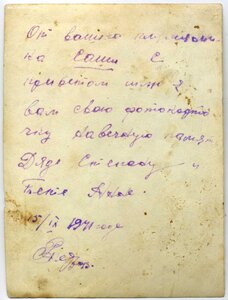 От вашего племяни
ка Саши С
приветом шлю я
вам свою фотокарто
чку на вечную память
Дяде Степану и
15/IX 1941 года